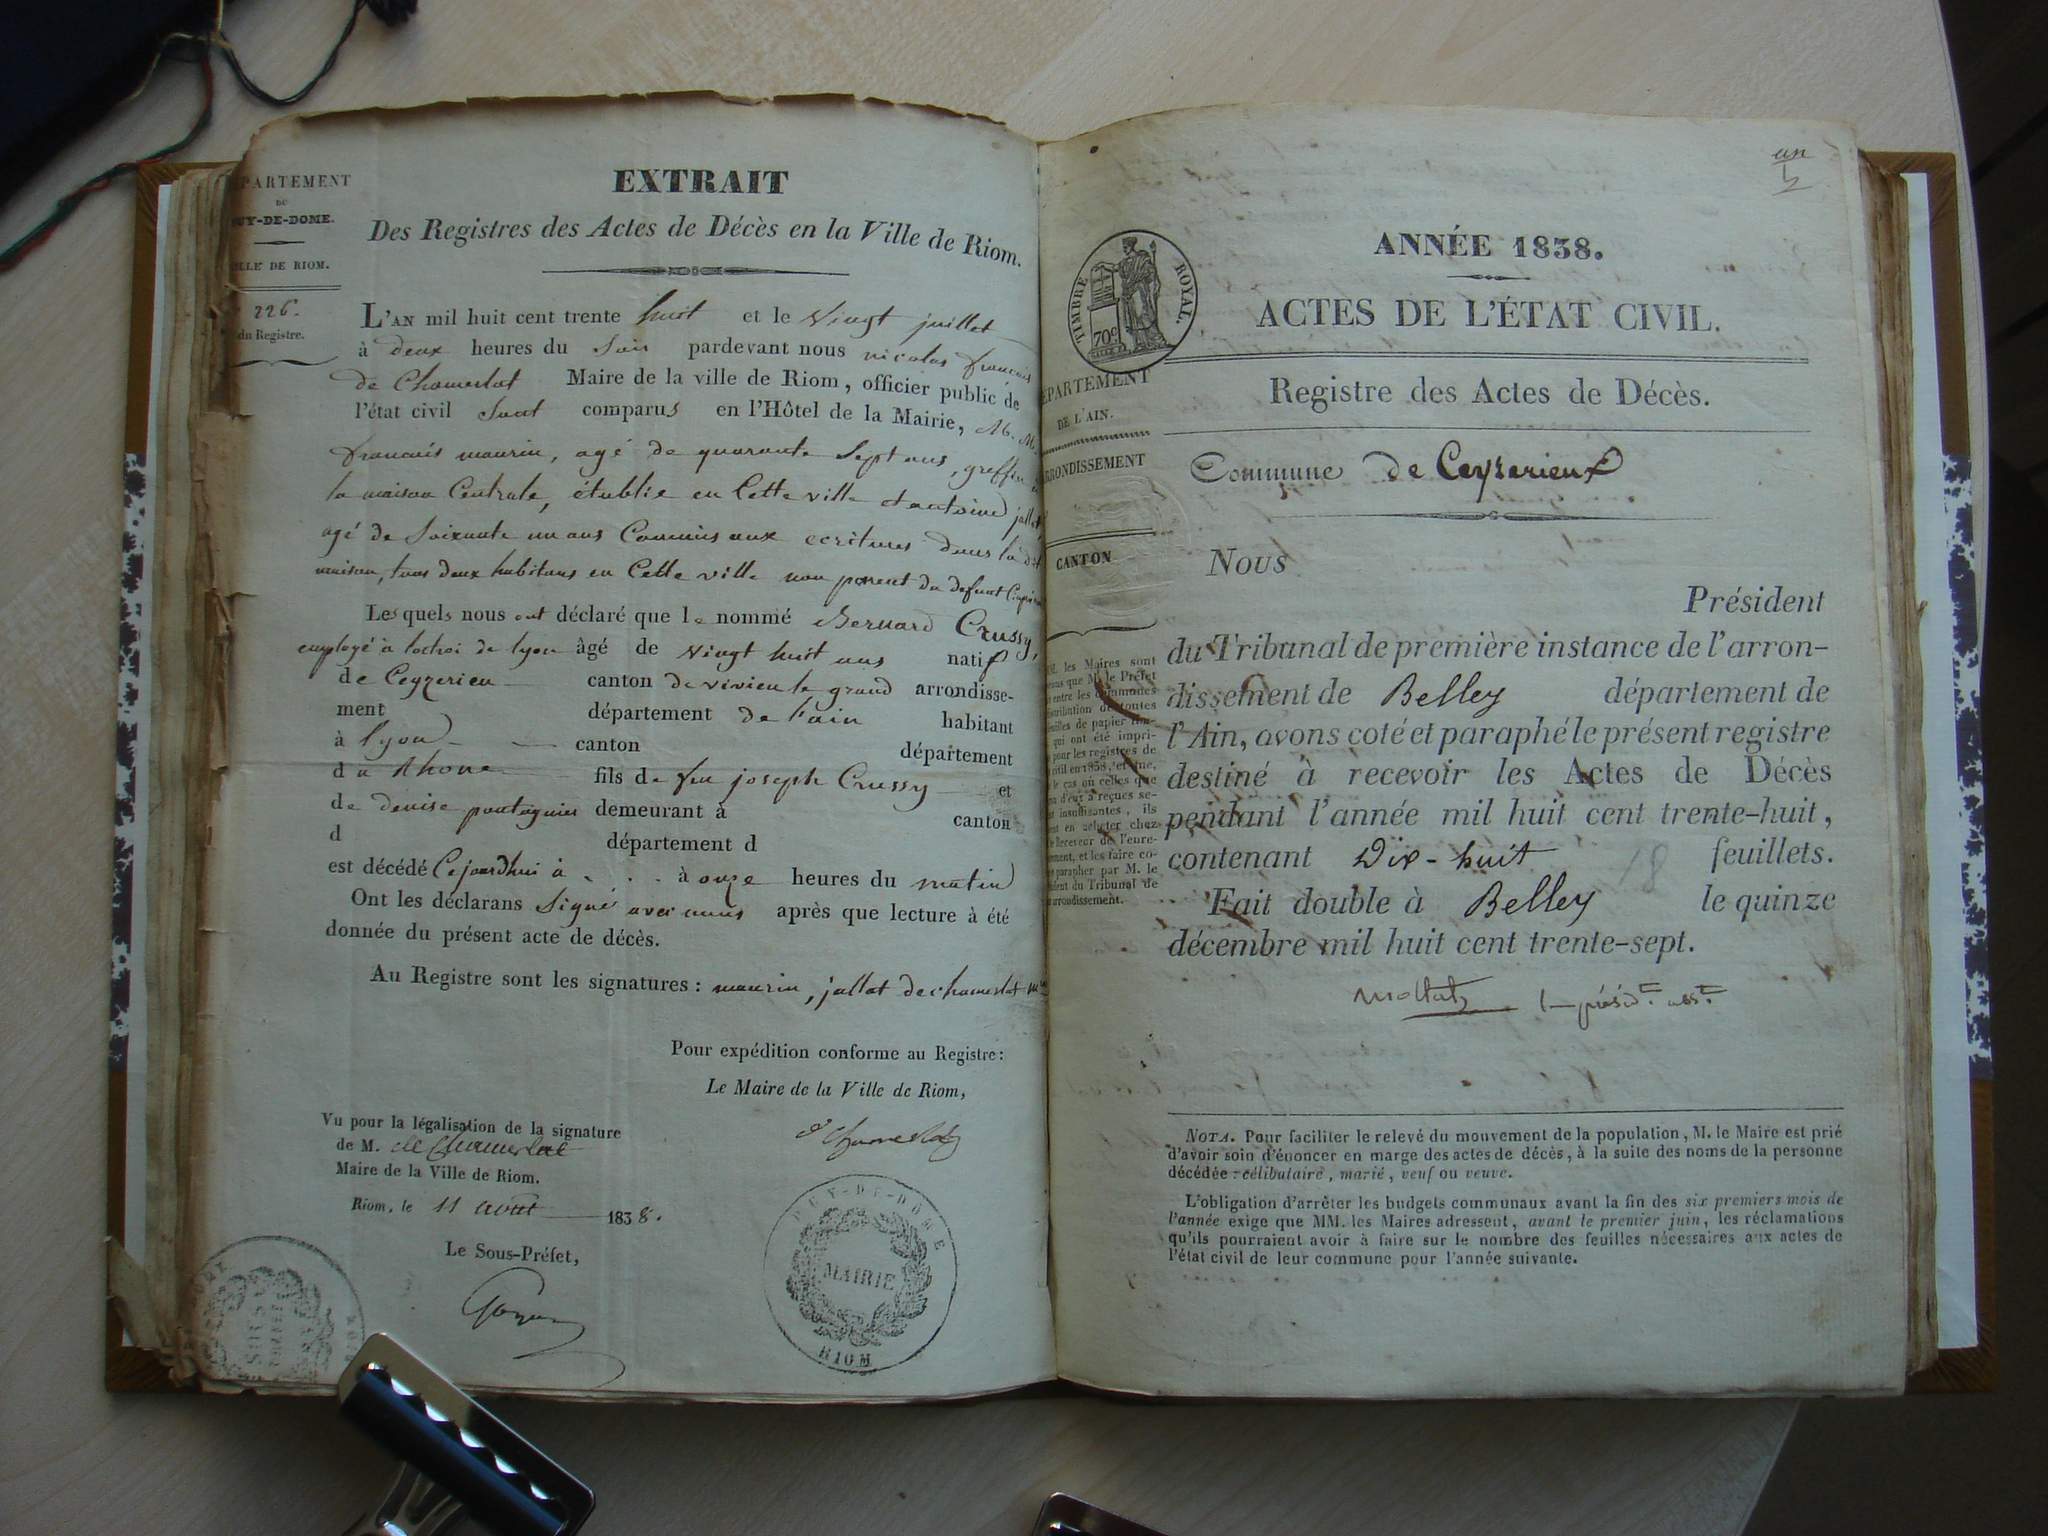 PARTEMENT
DU
UY-DE-DOME.
LLE DE RIOM.
226.
du Registre.
EXTRAIT
Des Registres des Actes de Décès en la Ville de Riom.
L'AN mil huit cent trente huit et le Vingt juillet
à deux heures du Soir pardevant nous nicolas francois
de Chamerlat Maire de la ville de Riom, officier public de
l'état civil Sont comparus en l'Hôtel de la Mairie, M. M.
francois maurin, agé de quarante Sept ans, greffier
la maison Centrale, établie en Cette ville et antoine jallat
agé de Soixante un ans Commis aux ecritures dans la dt
maison, tous deux habitans en Cette ville non parent du defunt
Les quels nous ont déclaré que le nommé Bernard Crussy,
employé à lochoi de lyon âgé de Vingt huit ans natif
de Ceyzerieu canton de virieu le grand arrondisse-
ment département de l'ain habitant
à lyon canton département
du Rhone fils de feu joseph Crussy et
de denise pontagnier demeurant à canton
d département d
est décédé Cejourdhui à . . . à onze heures du matin
Ont les déclarans Signé avec nous après que lecture à été
donnée du présent acte de décès.
Au Registre sont les signatures : maurin, jallat dechamerlat m
Pour expédition conforme au Registre :
Le Maire de la Ville de Riom,
Vu pour la légalisation de la signature
de M. de Chamerlat
Maire de la Ville de Riom.
Riom, le 11 août 1838.
Le Sous-Préfet,
PUY-DE-DOME
MAIRIE
RIOM
un
ANNÉE 1838.
TIMBRE ROYAL.
70c
ACTES DE L'ÉTAT CIVIL.
Registre des Actes de Décès.
ÉPARTEMENT
DE L'AIN.
RRONDISSEMENT
CANTON
Commune de Ceyzerieux
Nous
Président
du Tribunal de première instance de l'arron-
dissement de Belley département de
l'Ain, avons coté et paraphé le présent registre
destiné à recevoir les Actes de Décès
pendant l'année mil huit cent trente-huit,
contenant Dix-huit 18 feuillets.
Fait double à Belley le quinze
décembre mil huit cent trente-sept.
les Maires sont
que M. le Préfet
entre les communes
distribution de toutes
feuilles de papier tim-
qui ont été impri-
pour les registres de
civil en 1838, et que,
le cas où celles que
d'eux a reçues se-
insuffisantes, ils
en acheter chez
le Receveur de l'enre-
ment, et les faire co-
parapher par M. le
dent du Tribunal de
arrondissement.
NOTA. Pour faciliter le relevé du mouvement de la population, M. le Maire est prié
d'avoir soin d'énoncer en marge des actes de décès, à la suite des noms de la personne
décédée : célibataire, marié, veuf ou veuve.
L'obligation d'arrêter les budgets communaux avant la fin des six premiers mois de
l'année exige que MM. les Maires adressent, avant le premier juin, les réclamations
qu'ils pourraient avoir à faire sur le nombre des feuilles nécessaires aux actes de
l'état civil de leur commune pour l'année suivante.